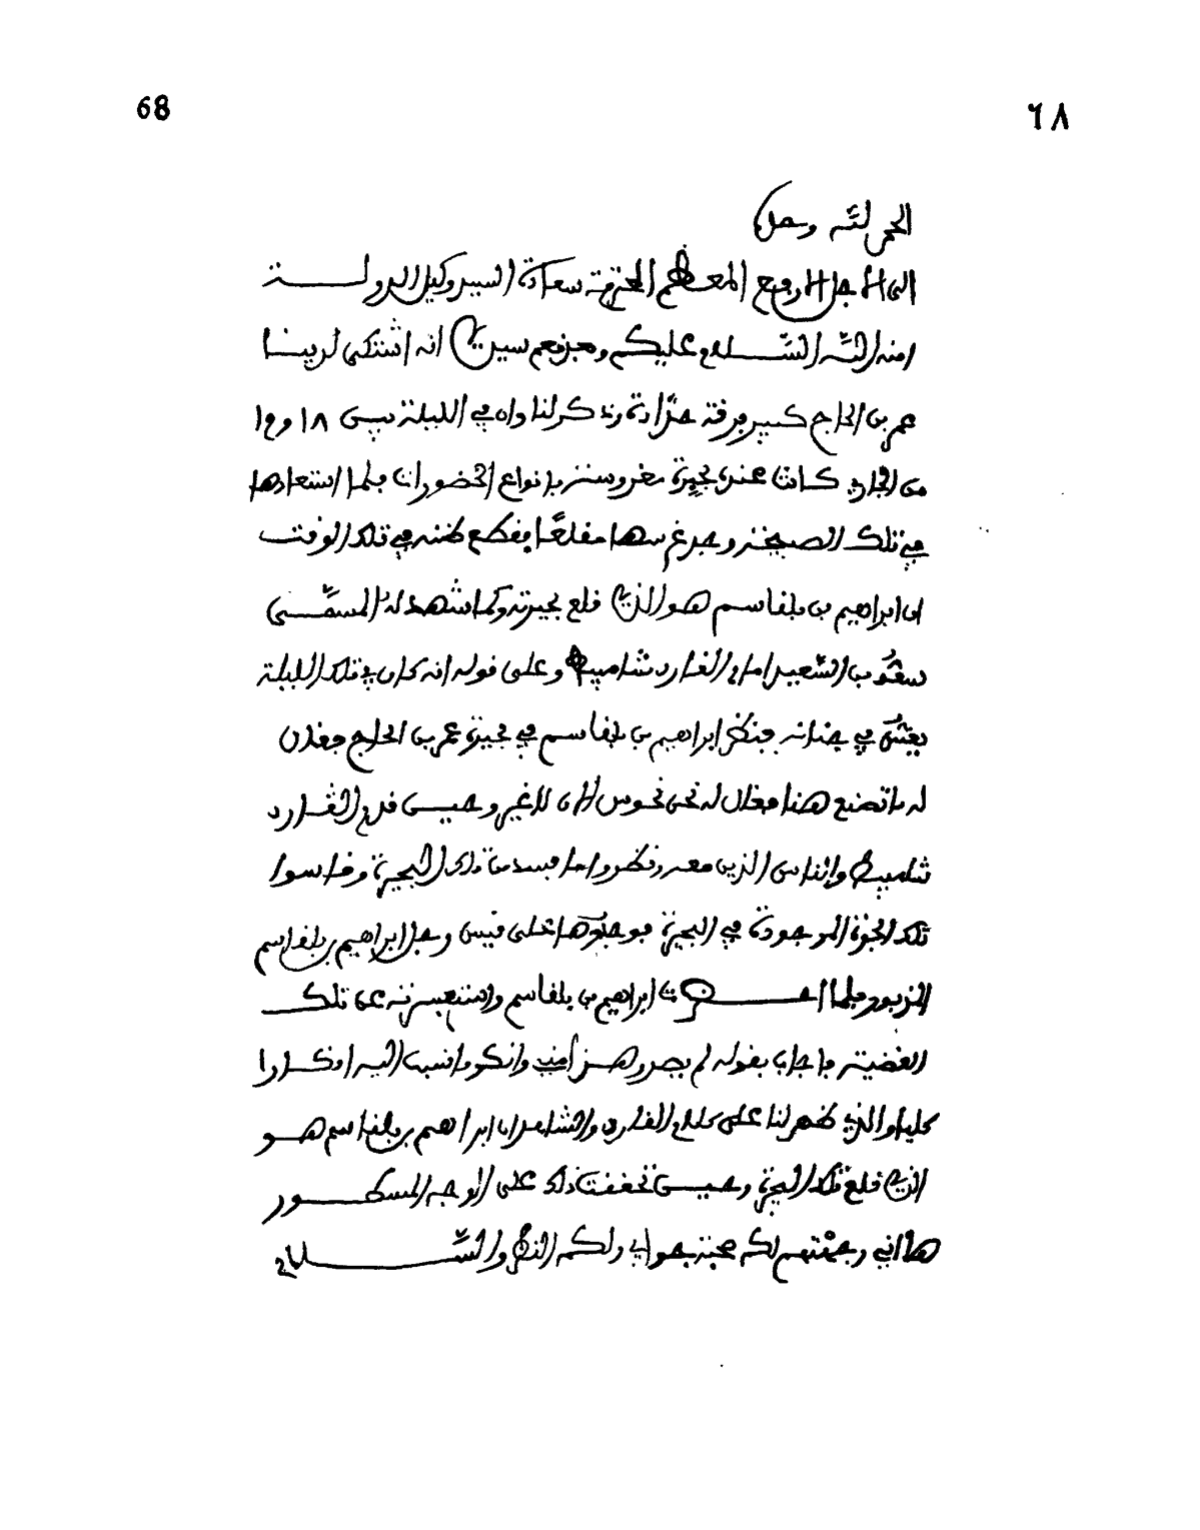 68
٦٨
الحمد لله وحده
الى الاجل الارفع المعظم المحترم سعادة السيد وكيل الدولة
امنه الله السلام عليكم وبعد فنعم سيدي انه اشتكى لدينا
عمر بن الحاج كبير فرقة وذكر لنا وان في الليلة بين ١٨ و١٩
من الجاري كانت عنده بحيرة مغروسة بانواع الخضورات فلما
في تلك وجد غرسها مقلعا فقطع ظنه في تلك الوقت
ان ابراهيم بن بلقاسم هو الذي قلع بحيرته وكما شهد له المسمى
امام القارد شامبيط وعلى قوله انه كان في تلك الليلة
في جنانه فنظر ابراهيم بن بلقاسم في بحيرة عمر بن الحاج فقال
له ما تصنع هنا فقال له نحن نحوس لا غير وحين قدم القارد
شامبيط والناس الذين معه ونظروا ما فسد من تلك البحيرة وقاسوا
تلك الموجودة في البحيرة فوجدوها على قيس رجل ابراهيم بن بلقاسم
المزبور فلما ابراهيم بن بلقاسم واستفسرته عن تلك
القضية فاجاب بقوله لم يصدر هذا مني وانكر ما نسب اليه انكارا
كليا والذي ظهر لنا على كلام القارد والشاهد ان ابراهيم بن بلقاسم هو
الذي قلع تلك البحيرة وحين تحققت ذلك على الوجه المسطور
ها اني وجهتهم لكم صحبة جوابي ولكم النظر والسلام